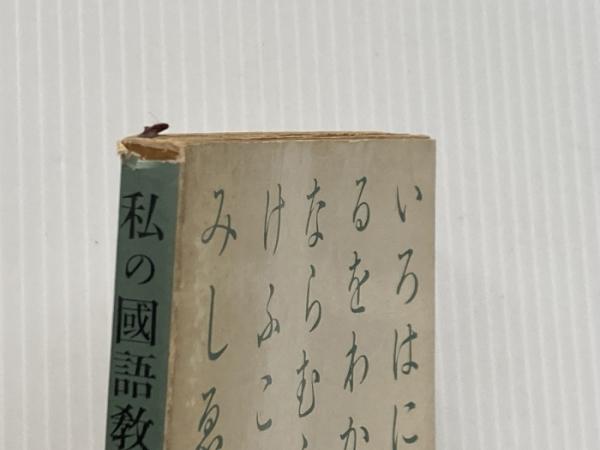 私の國語教
いろはに
るをわか
ならむ
けふこ
みしゑ